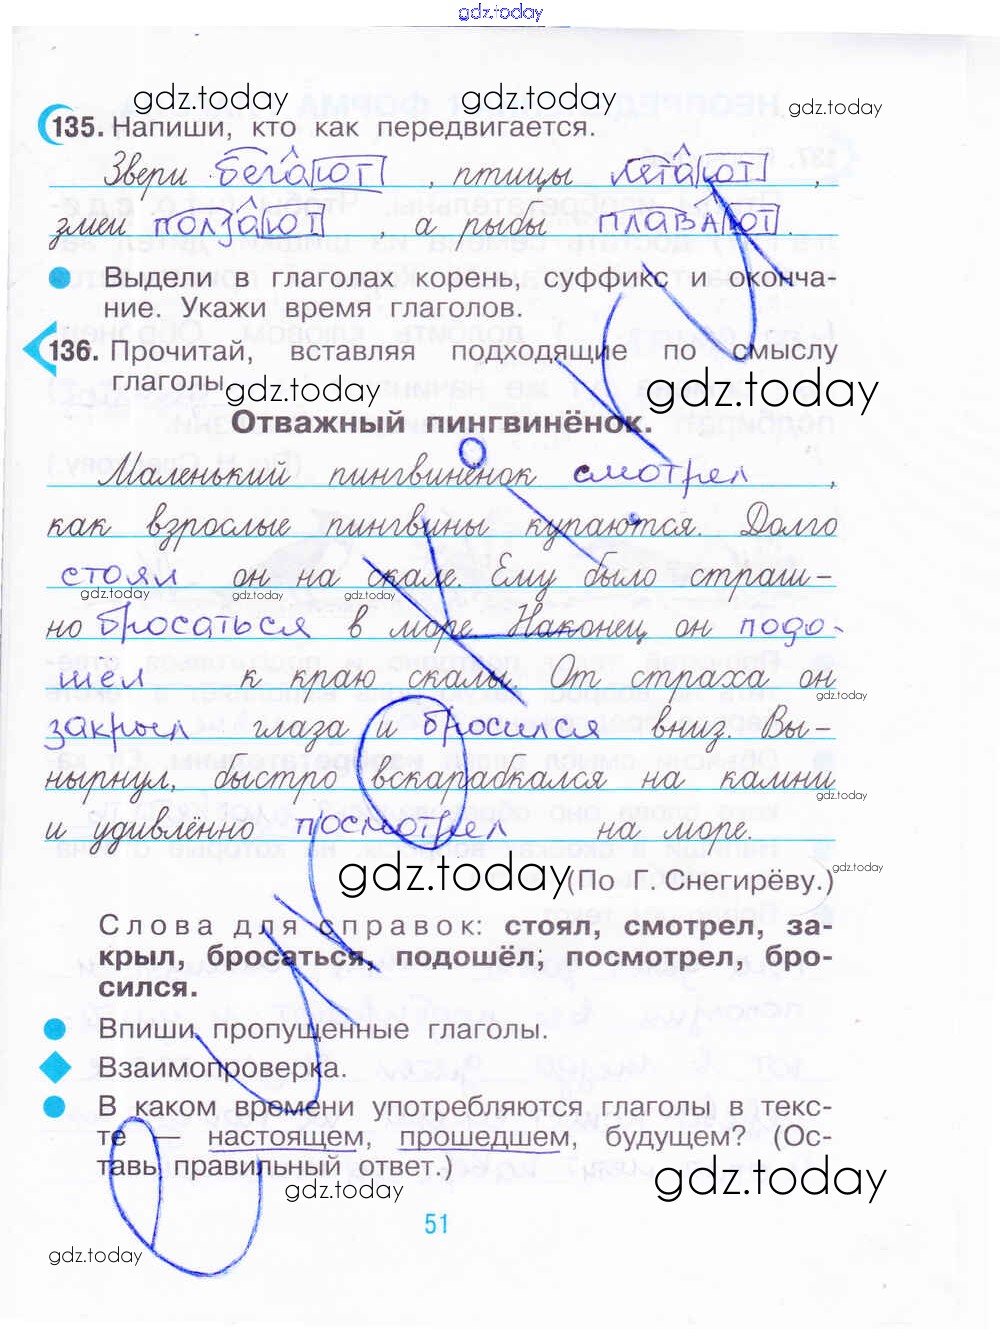 gdz.today
gdz.today gdz.today gdz.today
135. Напиши, кто как передвигается.
Звери бегают, птицы летают,
змеи ползают, а рыбы плавают.
Выдели в глаголах корень, суффикс и оконча-
ние. Укажи время глаголов.
136. Прочитай, вставляя подходящие по смыслу
глаголы.
gdz.today gdz.today
Отважный пингвинёнок.
Маленький пингвинёнок смотрел,
как взрослые пингвины купаются. Долго
стоял он на скале. Ему было страш-
gdz.today gdz.today gdz.today
но бросаться в море. Наконец он подо-
шёл к краю скалы. От страха он
gdz.today
закрыл глаза и бросился вниз. Вы-
нырнул, быстро вскарабкался на камни
gdz.today
и удивлённо посмотрел на море.
gdz.today gdz.today
(По Г. Снегирёву.)
Слова для справок: стоял, смотрел, за-
крыл, бросаться, подошёл, посмотрел, бро-
сился.
Впиши пропущенные глаголы.
Взаимопроверка.
В каком времени употребляются глаголы в текс-
те — настоящем, прошедшем, будущем? (Ос-
тавь правильный ответ.)
gdz.today gdz.today
51
gdz.today